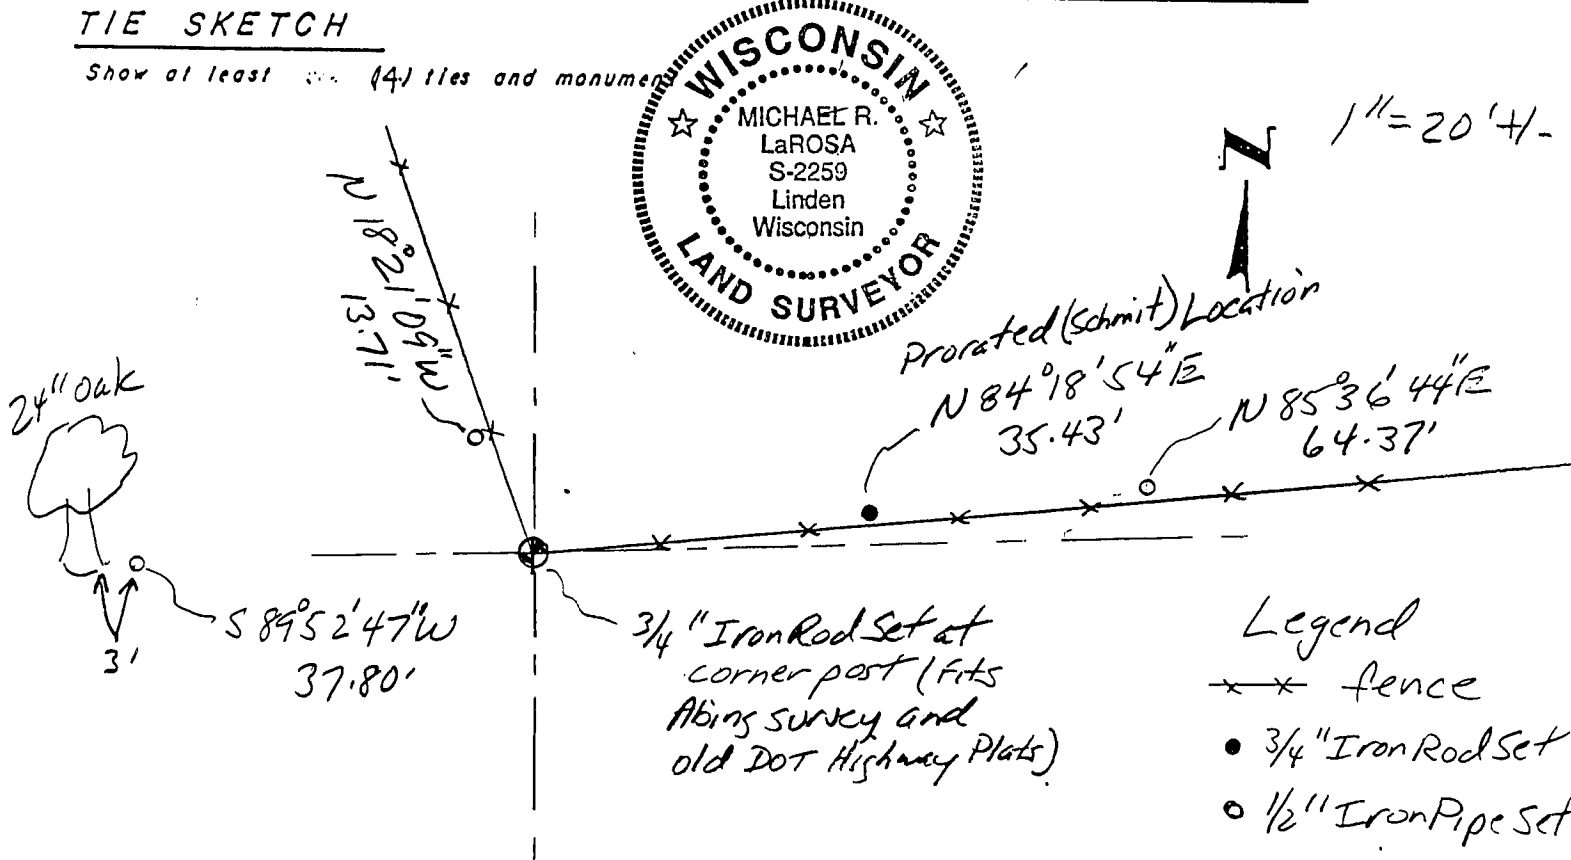 TIE SKETCH
Show at least (4) ties and monument
WISCONSIN
MICHAEL R.
LaROSA
S-2259
Linden
Wisconsin
LAND SURVEYOR
1"=20'+/-
N
N 18°21'09"W
13.71'
Prorated (Schmit) Location
N 84°18'54"E
35.43'
N 85°36'44"E
64.37'
24" Oak
3'
S 89°52'47"W
37.80'
3/4" Iron Rod Set at
corner post (Fits
Abing survey and
old DOT Highway Plats)
Legend
fence
3/4" Iron Rod Set
1/2" Iron Pipe Set